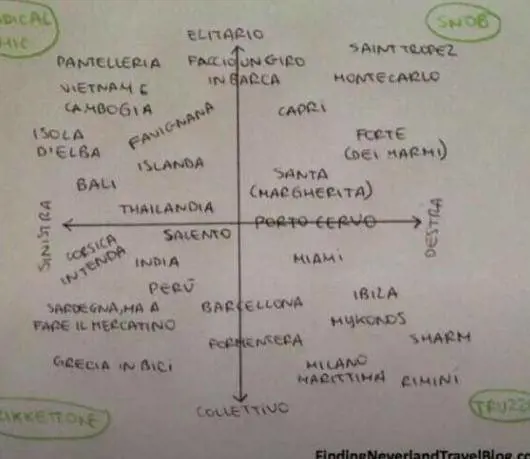 ELITARIO
SNOB
PANTELLERIA
FACCIO UN GIRO
IN BARCA
SAINT TROPEZ
MONTECARLO
VIETNAM E
CAMBOGIA
FAVIGNANA
CAPRI
ISOLA
D'ELBA
FORTE
(DEI MARMI)
ISLANDA
SANTA
(MARGHERITA)
BALI
THAILANDIA
PORTO CERVO
SINISTRA
DESTRA
SALENTO
CORSICA
IN TENDA
INDIA
MIAMI
PERÙ
SARDEGNA, MA A
FARE IL MERCATINO
BARCELLONA
IBIZA
MYKONOS
FORMENTERA
SHARM
GRECIA IN BICI
MILANO
MARITTIMA
RIMINI
COLLETTIVO
FindingNeverlandTravelBlog.co